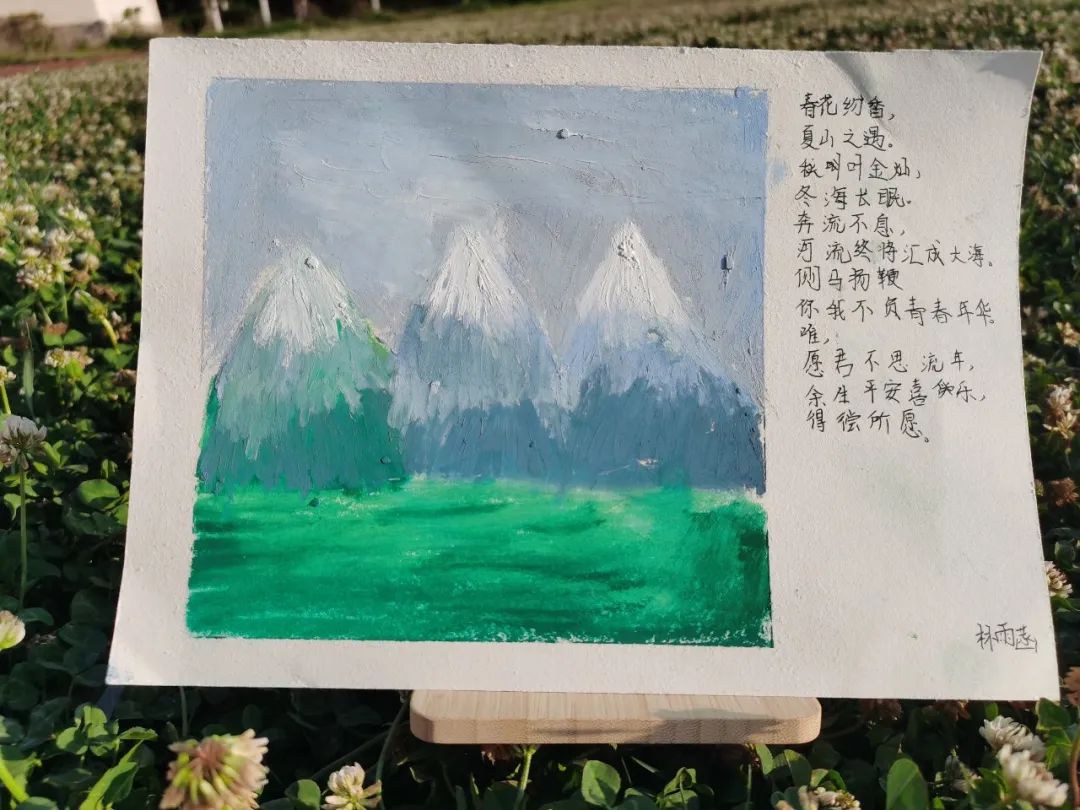 春花纷香,
夏山之遇。
秋叶金灿,
冬海长眠。
奔流不息,
河流终将汇成大海。
侧马扬鞭
你我不负青春年华。
唯,
愿君不思流年,
余生平安喜快乐,
得偿所愿。
林雨